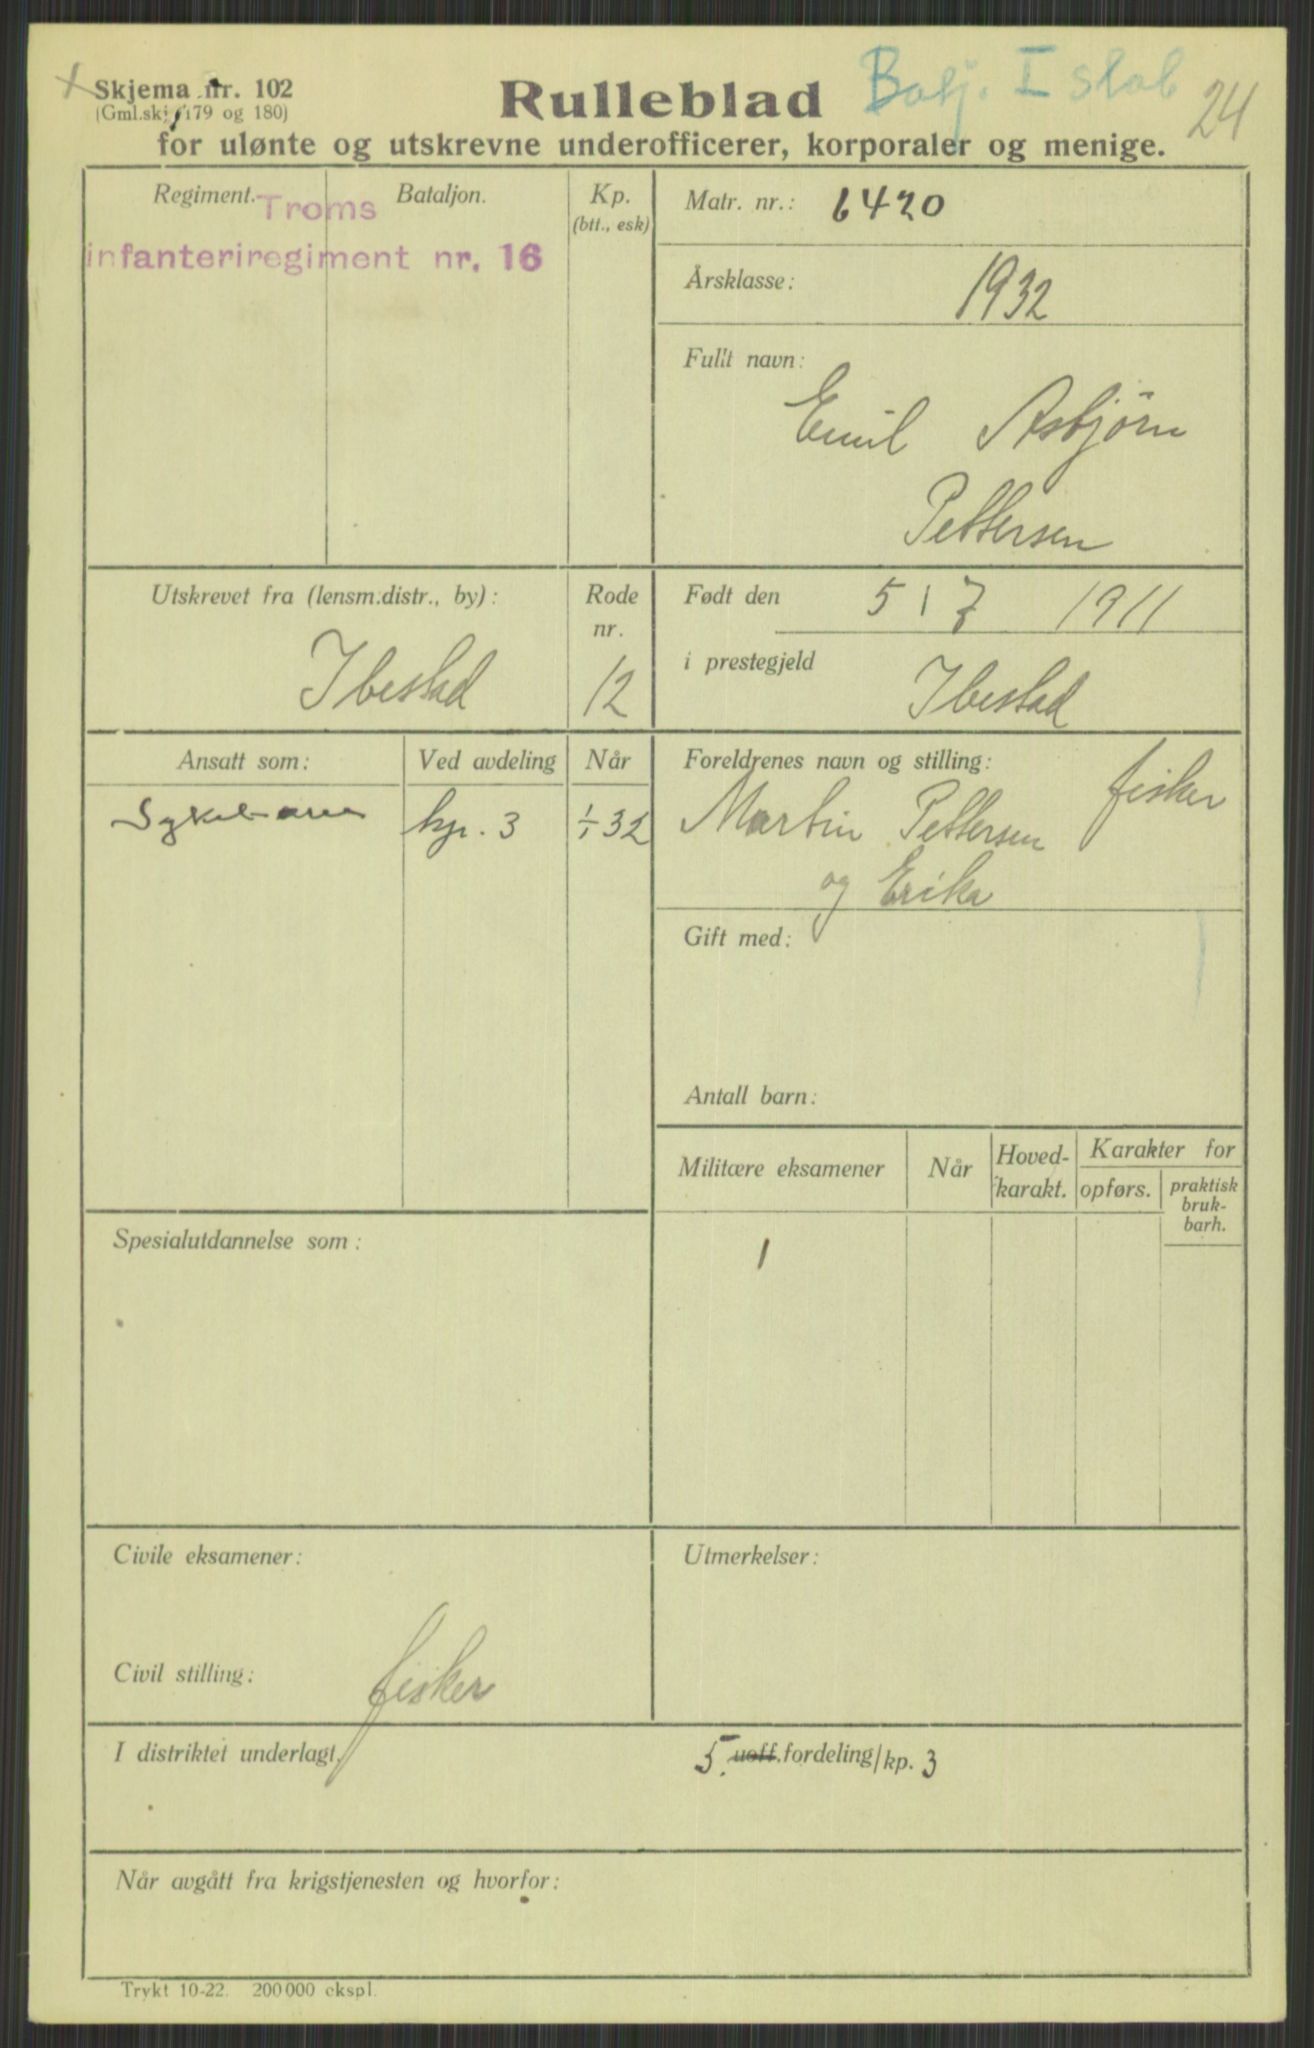 Skjema nr. 102
(Gml.skj. 179 og 180)
Rulleblad
Batj. I stab
24
for ulønte og utskrevne underofficerer, korporaler og menige.
Regiment.
Bataljon.
Kp.
(btt., esk)
Troms
infanteriregiment nr. 16
Matr. nr.: 6420
Årsklasse: 1932
Fullt navn:
Emil Asbjørn
Pettersen
Utskrevet fra (lensm.distr., by):
Ibestad
Rode
nr.
12
Født den 5 / 7 1911
i prestegjeld Ibestad
Ansatt som:
Ved avdeling
Når
kp. 3
1/1 32
Foreldrenes navn og stilling:
Martin Pettersen fisker
og Erika
Gift med:
Antall barn:
Militære eksamener
Når
Hoved-
karakt.
Karakter for
opførs.
praktisk
bruk-
barh.
Spesialutdannelse som:
Civile eksamener:
Civil stilling: fisker
Utmerkelser:
I distriktet underlagt.
5. uoff. fordeling/kp. 3
Når avgått fra krigstjenesten og hvorfor:
Trykt 10-22. 200 000 ekspl.